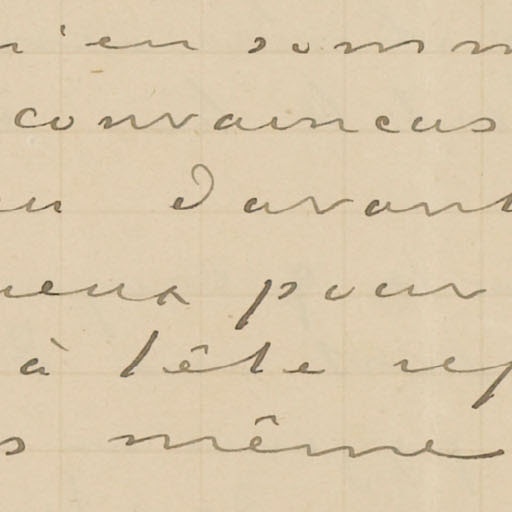 n'en somm
convaincus
eu davant
neux pour
à tête rep
s même